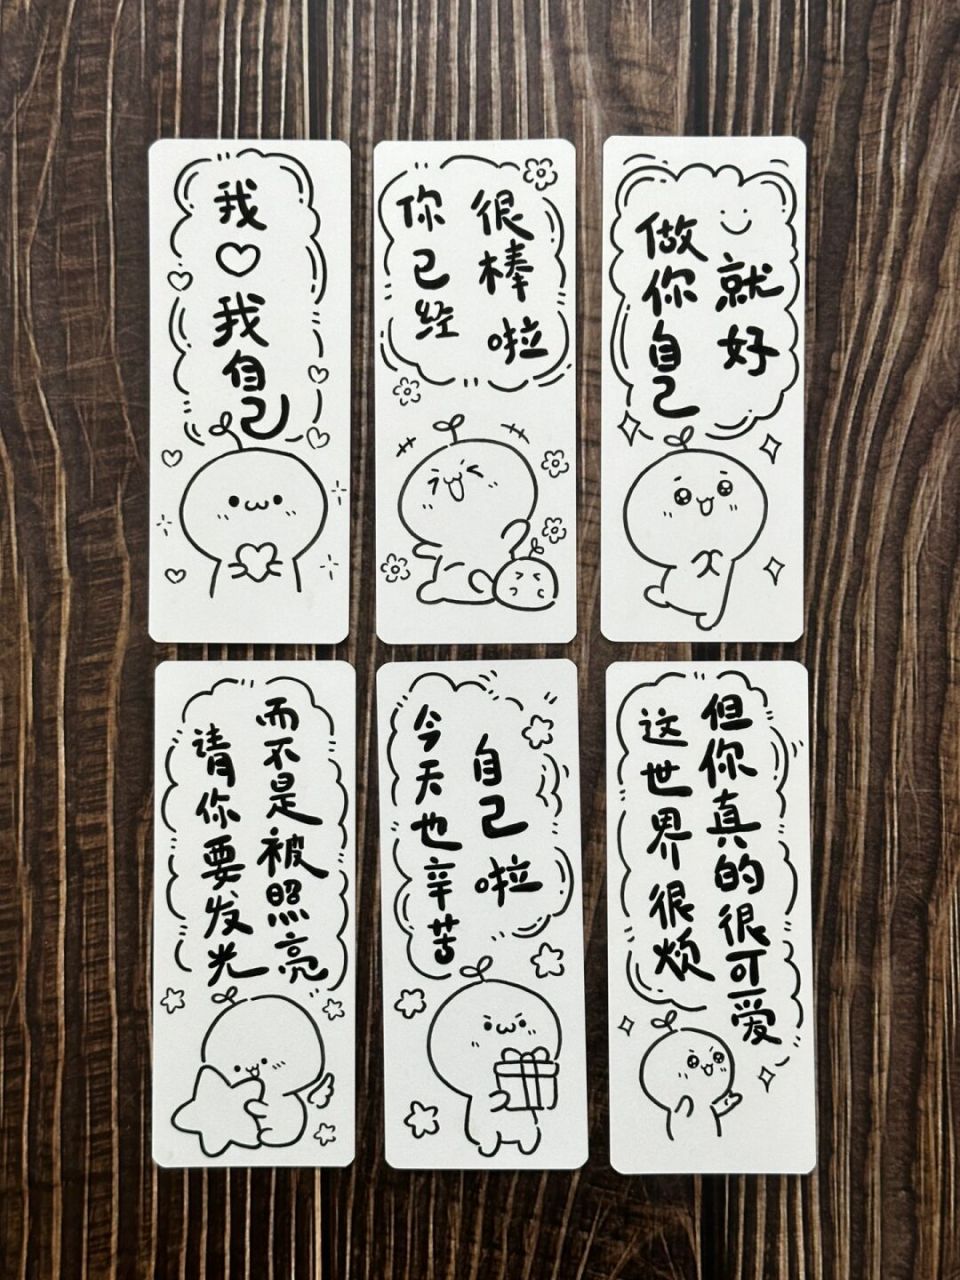 我♡我自己
你已经
很棒啦
做你自己
就好
请你要发光
而不是被照亮
今天也辛苦
自己啦
这世界很烦
但你真的很可爱